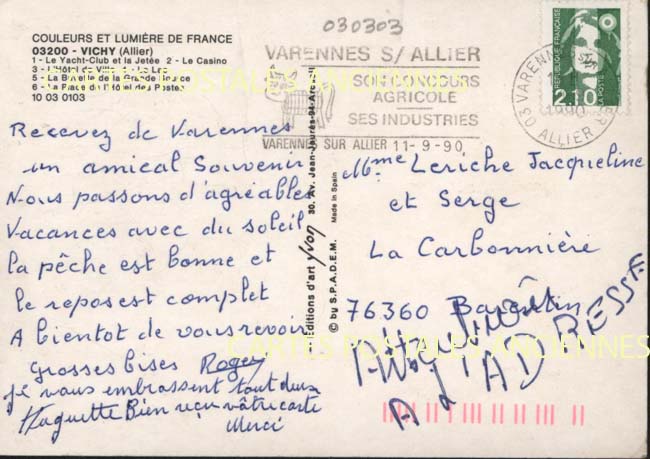 030303
COULEURS ET LUMIÈRE DE FRANCE
03200 - VICHY (Allier)
1 - Le Yacht-Club et la Jetée 2 - Le Casino
3 - L'Hôtel de Ville 4 - Le Lac
5 - La Buvette de la Grande Source
6 - La Place de l'Hôtel des Postes
10 03 0103
VARENNES S/ ALLIER
SON CONCOURS
AGRICOLE
SES INDUSTRIES
VARENNES SUR ALLIER 11-9-90
03 VARENNES
1990
ALLIER
RÉPUBLIQUE FRANÇAISE
LA POSTE
2,10
Recevez de Varennes
un amical Souvenir
Nous passons d'agréables
Vacances avec du soleil
la pêche est bonne et
le repos est complet
A bientot de vous revoir
Grosses bises Roger
je vous embrassent tout deux
Huguette Bien reçu vôtre carte
Merci
Editions d'art Yvon 30, Av. Jean-Jaurès-94-Arcueil
© by S.P.A.D.E.M. Made in Spain
Mme Leriche Jacqueline
et Serge
La Carbonnière
76360 Barentin
A L'ADRESSE
CARTES POSTALES ANCIENNES
CARTES POSTALES ANCIENNES